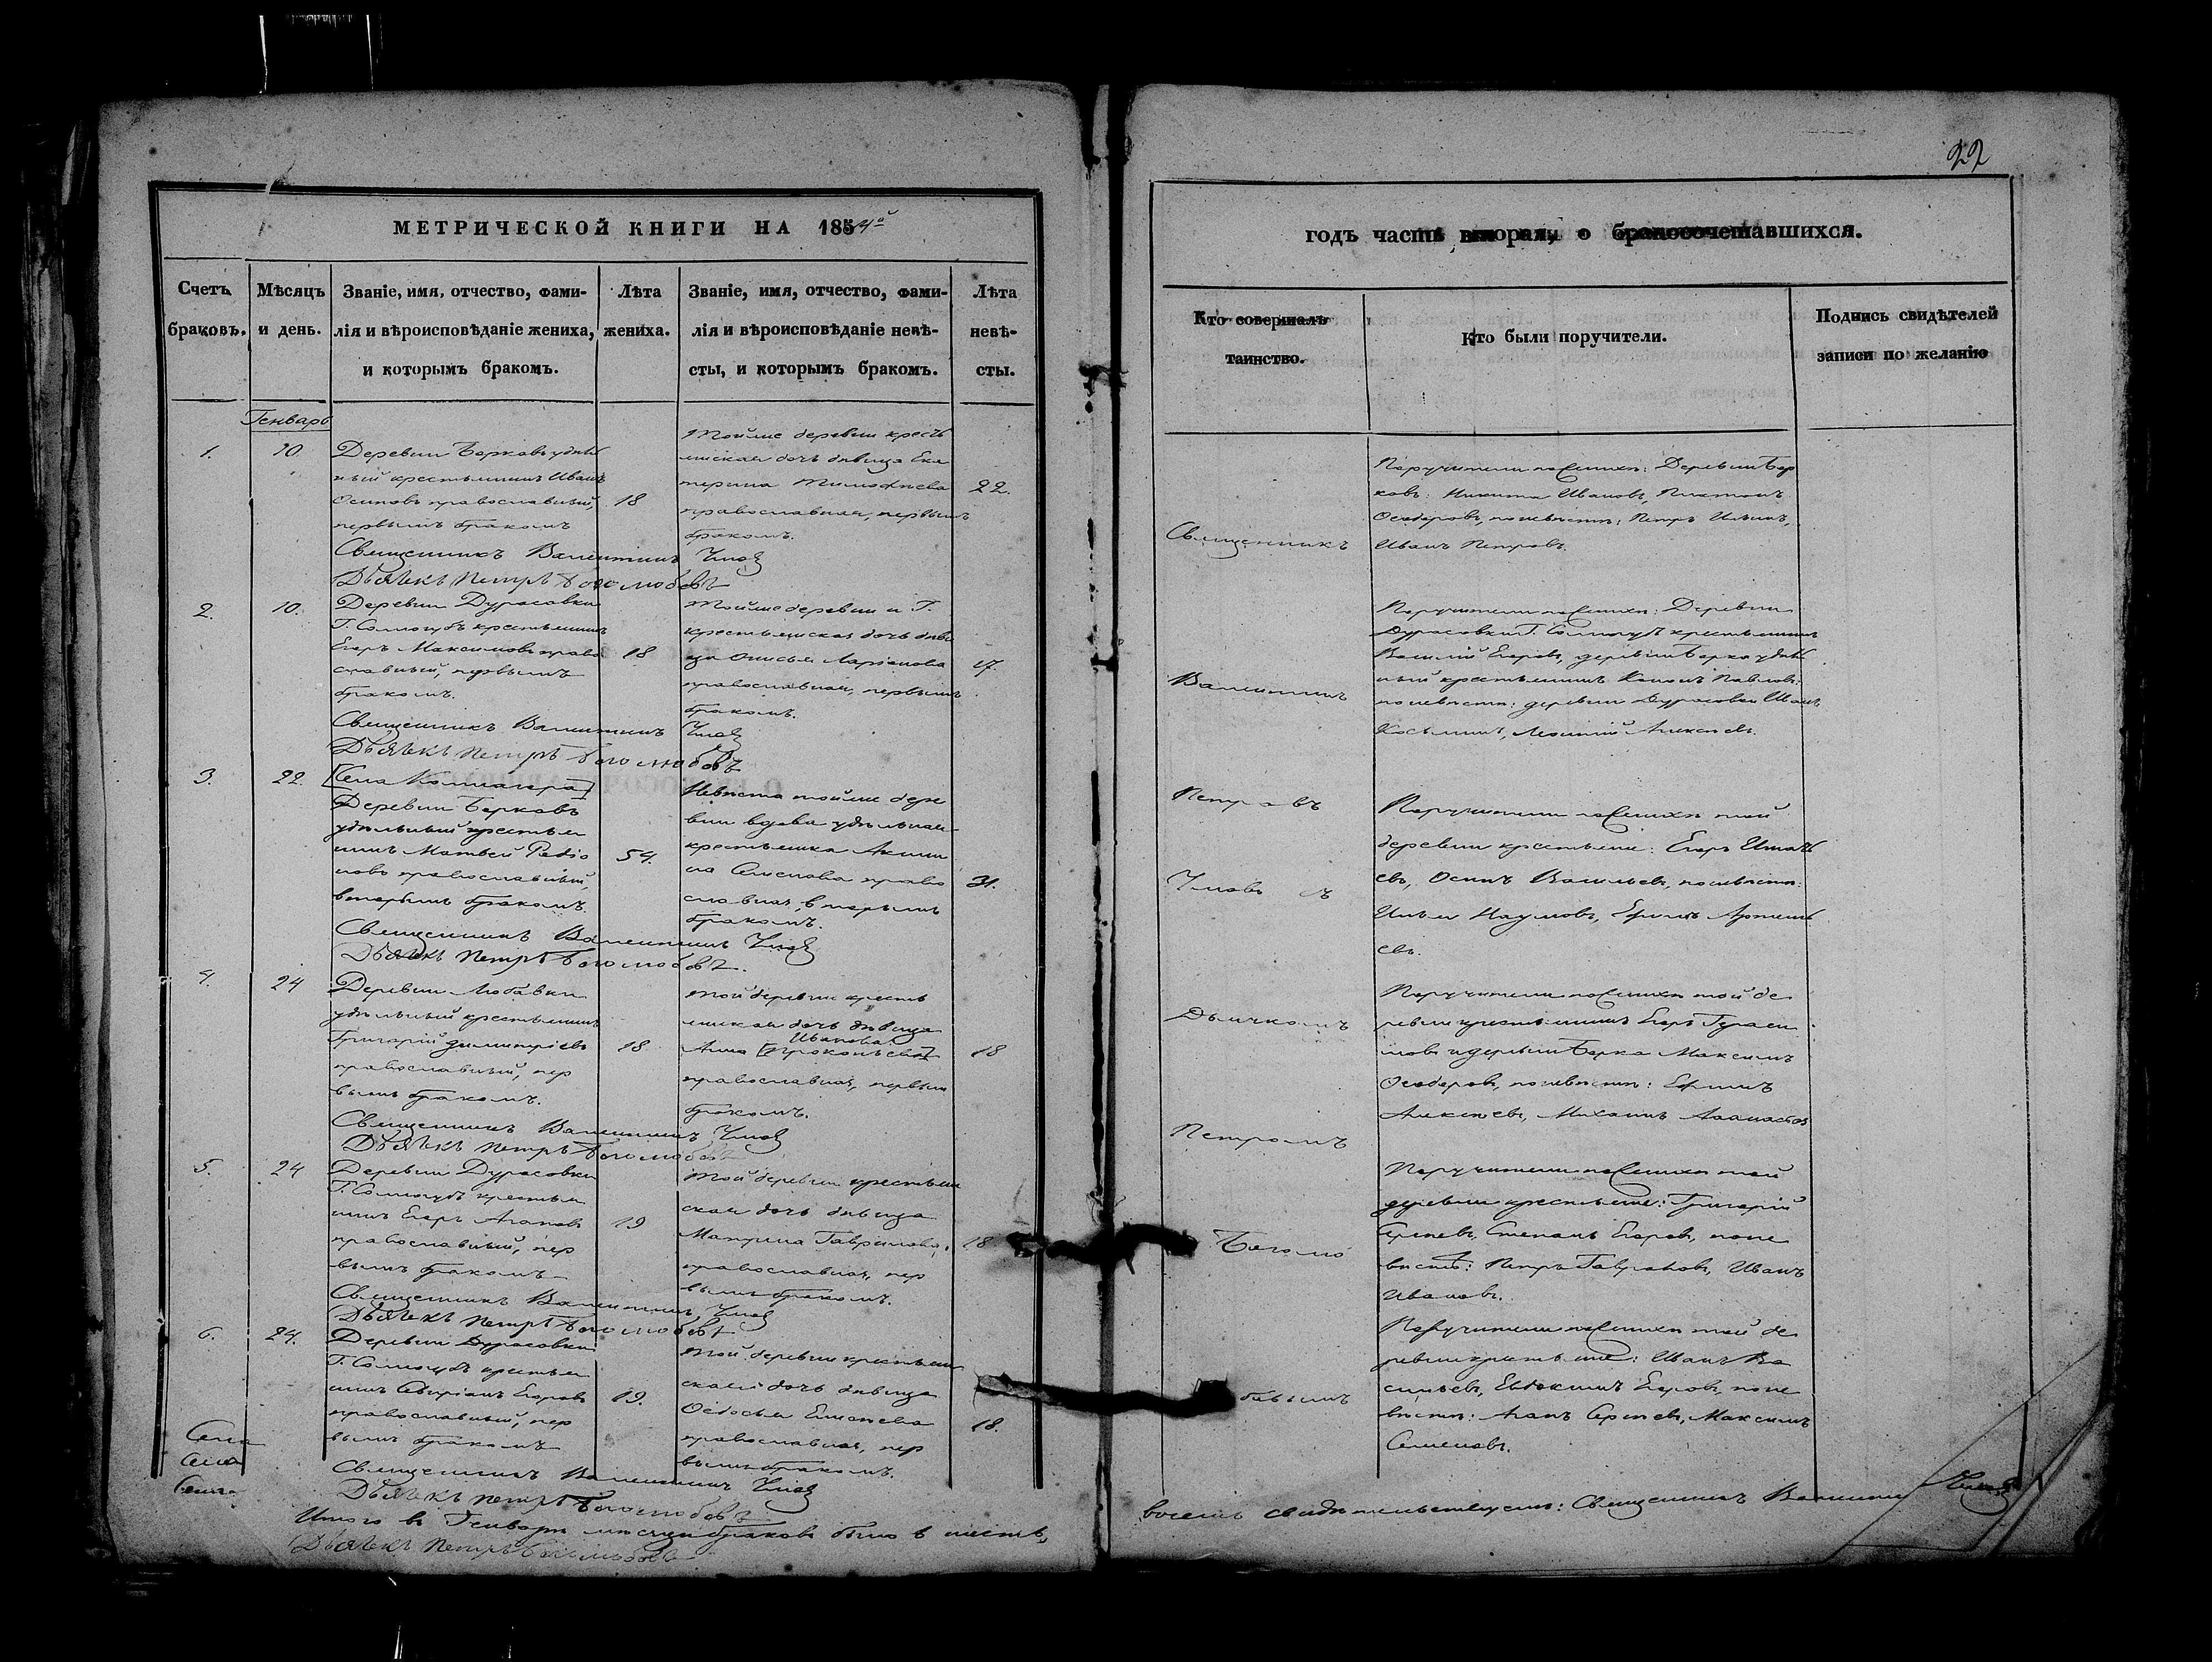 22
МЕТРИЧЕСКОЙ КНИГИ НА 1854й
Счетъ браковъ.
Мѣсяцъ и день.
Званіе, имя, отчество, фами-
лія и вѣроисповѣданіе жениха,
и которымъ бракомъ.
Лѣта жениха.
Званіе, имя, отчество, фами-
лія и вѣроисповѣданіе невѣ-
сты, и которымъ бракомъ.
Лѣта невѣ-
сты.
Генварь
1.
10
Деревни Борковъ удѣль
ный крестьянинъ Иванъ
Осиповъ православный,
первымъ бракомъ
18
Тойже деревни кресть
янская дочь дѣвица Ека
терина Тимофѣева
православная, первымъ
бракомъ.
22.
Священникъ Валентинъ
Дьячекъ Петръ Боголюбовъ
2.
10.
Деревни Дурасовки
Г. Сологубъ крестьянинъ
Егоръ Максимовъ право
славный, первымъ
бракомъ.
18
Тойже деревни и Г.
крестьянская дочь дѣви
ца Анисья Ларіонова
православная, первымъ
бракомъ.
17.
Священникъ Валентинъ
Дьячекъ Петръ Боголюбовъ
3.
22.
[Села]
Деревни Борковъ
удѣльный крестья
нинъ Матвей Родіо
новъ православный,
вторымъ бракомъ.
54.
Невѣста тойже дере
вни вдова удѣльная
крестьянка Акили
на Семенова право
славная, вторымъ
бракомъ.
31.
Священникъ Валентинъ
Дьячекъ Петръ Боголюбовъ.
4.
24
Деревни
удѣльный крестьянинъ
Григорій Димитріевъ
православный, пер
вымъ бракомъ.
18
Той деревни кресть
янская дочь дѣвица
Иванова
Анна [Прокопьева]
православная, первым
бракомъ.
18
Священникъ Валентинъ
Дьячекъ Петръ Боголюбовъ
5.
24
Деревни Дурасовки
Г. Сологубъ крестья
нинъ Егоръ Агаповъ
православный, пер
вымъ бракомъ
19
Той деревни крестьян
ская дочь дѣвица
Матрена Гаврилова,
православная, пер
вымъ бракомъ.
18
Священникъ Валентинъ
Дьячекъ Петръ Боголюбовъ
6.
24.
Деревни Дурасовки
Г. Сологубъ крестья
нинъ Егоровъ
православный, пер
вымъ бракомъ
19.
Той деревни крестьян
ская дочь дѣвица
Ѳедосья Елисѣева
православная, пер
вымъ бракомъ.
18.
Села
Села
Священникъ Валентинъ
Дьячекъ Петръ Боголюбовъ
Итого в Генварѣ мѣсяцѣ браковъ было в шесть,
Дьячекъ Петръ Боголюбовъ
годъ часть вторая, о бракосочетавшихся.
Кто совершалъ
таинство.
Кто были поручители.
Подпись свидѣтелей
записи по желанію
Священникъ
Валентинъ
Петровъ
Дьячкомъ
Петромъ
Боголю
бовымъ
Поручители по женихѣ: Деревни Бор
ковъ: Никита Ивановъ, Платонъ
Ѳеодоровъ, по невѣстѣ: Петръ Ильинъ,
Иванъ Петровъ.
Поручители по женихѣ: Деревни
Дурасовки Г. Сологубъ крестьянинъ
Василій Егоровъ, деревни Борка удѣль
ный крестьянинъ Кононъ Павловъ:
по невѣстѣ: деревни Дурасовки Иванъ
Косьминъ, Леонтій Алексѣевъ.
Поручители по женихѣ той
деревни крестьяне: Егоръ Игнать
евъ, Осипъ Васильевъ, по невѣстѣ:
Илья Наумовъ, Ефимъ Артемь
евъ.
Поручители по женихѣ той де
ревни крестьянинъ Егоръ Гераси
мовъ и деревни Борка Максимъ
Ѳеодоровъ, по невѣстѣ: Ефимъ
Алексѣевъ, Михаилъ Аѳанасьев
Поручители по женихѣ той
деревни крестьяне: Григорій
Сергѣевъ, Степанъ Егоровъ, по не
вѣстѣ: Петръ Гавриловъ, Иванъ
Ивановъ.
Поручители по женихѣ той де
ревни крестьяне: Иванъ Ва
сильевъ, Евдокимъ Егоровъ, по не
вѣстѣ: Агапъ Сергѣевъ, Максимъ
Семеновъ.
свидѣтельствуемъ: Священникъ Валентин